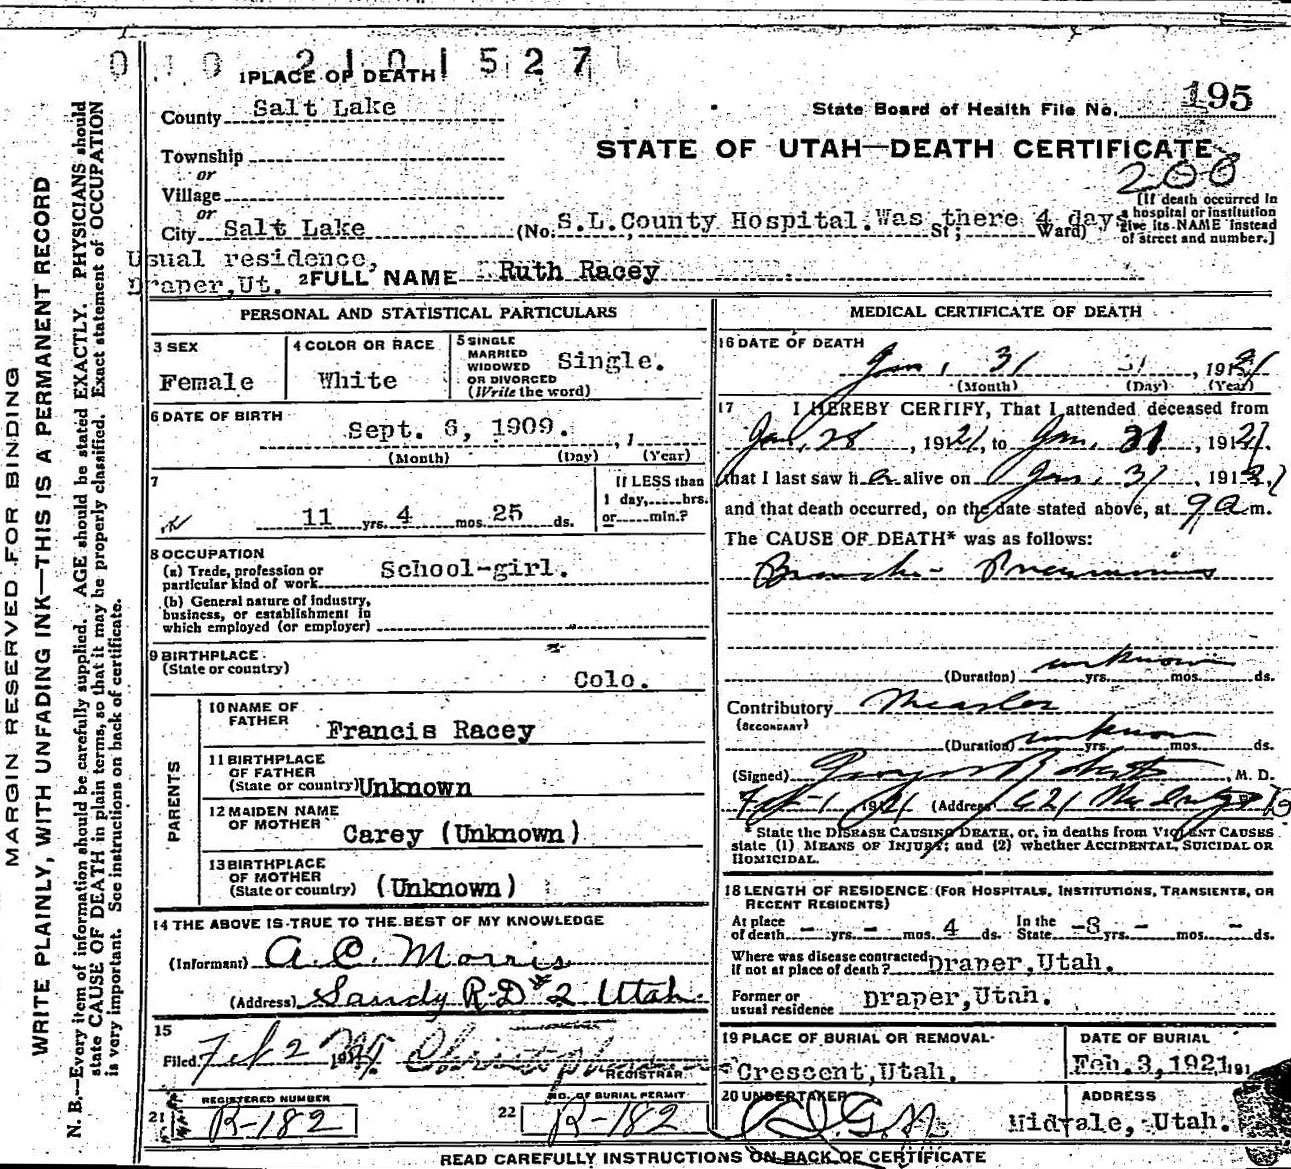 0 10 2101527
1 PLACE OF DEATH
County Salt Lake
State Board of Health File No. 195
Township
or
STATE OF UTAH—DEATH CERTIFICATE
200
Village
or
City Salt Lake (No. S.L. County Hospital. Was there 4 days St; Ward)
[If death occurred in a hospital or institution give its NAME instead of street and number.]
Usual residence,
Draper, Ut. 2 FULL NAME Ruth Racey
PERSONAL AND STATISTICAL PARTICULARS
3 SEX
Female
4 COLOR OR RACE
White
5 SINGLE
MARRIED
WIDOWED
OR DIVORCED
(Write the word)
Single.
6 DATE OF BIRTH
Sept. 6, 1909. , 1
(Month) (Day) (Year)
7
11 yrs. 4 mos. 25 ds.
If LESS than
1 day, hrs.
or min.?
8 OCCUPATION
(a) Trade, profession or
particular kind of work School-girl.
(b) General nature of industry,
business, or establishment in
which employed (or employer)
9 BIRTHPLACE
(State or country)
Colo.
PARENTS
10 NAME OF
FATHER Francis Racey
11 BIRTHPLACE
OF FATHER
(State or country) Unknown
12 MAIDEN NAME
OF MOTHER Carey (Unknown)
13 BIRTHPLACE
OF MOTHER
(State or country) (Unknown)
14 THE ABOVE IS TRUE TO THE BEST OF MY KNOWLEDGE
(Informant) A. C. Morris
(Address) Sandy R.D # 2 Utah
15
Filed Feb 2
REGISTRAR
REGISTERED NUMBER
21 R-182
NO. OF BURIAL PERMIT
22 R-182
MEDICAL CERTIFICATE OF DEATH
16 DATE OF DEATH
Jan, 31 31, 191
(Month) (Day) (Year)
17 I HEREBY CERTIFY, That I attended deceased from
Jan, 28, 1921, to Jan, 31, 1921,
that I last saw her alive on Jan, 31, 1921,
and that death occurred, on the date stated above, at 9 a m.
The CAUSE OF DEATH* was as follows:
Broncho- Pneumonia
(Duration) unknown yrs. mos. ds.
Contributory Measles
(SECONDARY)
(Duration) unknown yrs. mos. ds.
(Signed) Roberts, M. D.
Feb 1 1921 (Address)
* State the DISEASE CAUSING DEATH, or, in deaths from VIOLENT CAUSES
state (1) MEANS OF INJURY; and (2) whether ACCIDENTAL, SUICIDAL OR
HOMICIDAL.
18 LENGTH OF RESIDENCE (FOR HOSPITALS, INSTITUTIONS, TRANSIENTS, OR
RECENT RESIDENTS)
At place of death - yrs. - mos. 4 ds. In the State -8 yrs. - mos. - ds.
Where was disease contracted
if not at place of death? Draper, Utah.
Former or
usual residence Draper, Utah.
19 PLACE OF BURIAL OR REMOVAL
Crescent, Utah.
DATE OF BURIAL
Feb. 3, 1921, 191
20 UNDERTAKER
ADDRESS
Midvale, Utah.
READ CAREFULLY INSTRUCTIONS ON BACK OF CERTIFICATE
MARGIN RESERVED FOR BINDING
WRITE PLAINLY, WITH UNFADING INK—THIS IS A PERMANENT RECORD
N. B.—Every item of information should be carefully supplied. AGE should be stated EXACTLY. PHYSICIANS should
state CAUSE OF DEATH in plain terms, so that it may be properly classified. Exact statement of OCCUPATION
is very important. See instructions on back of certificate.